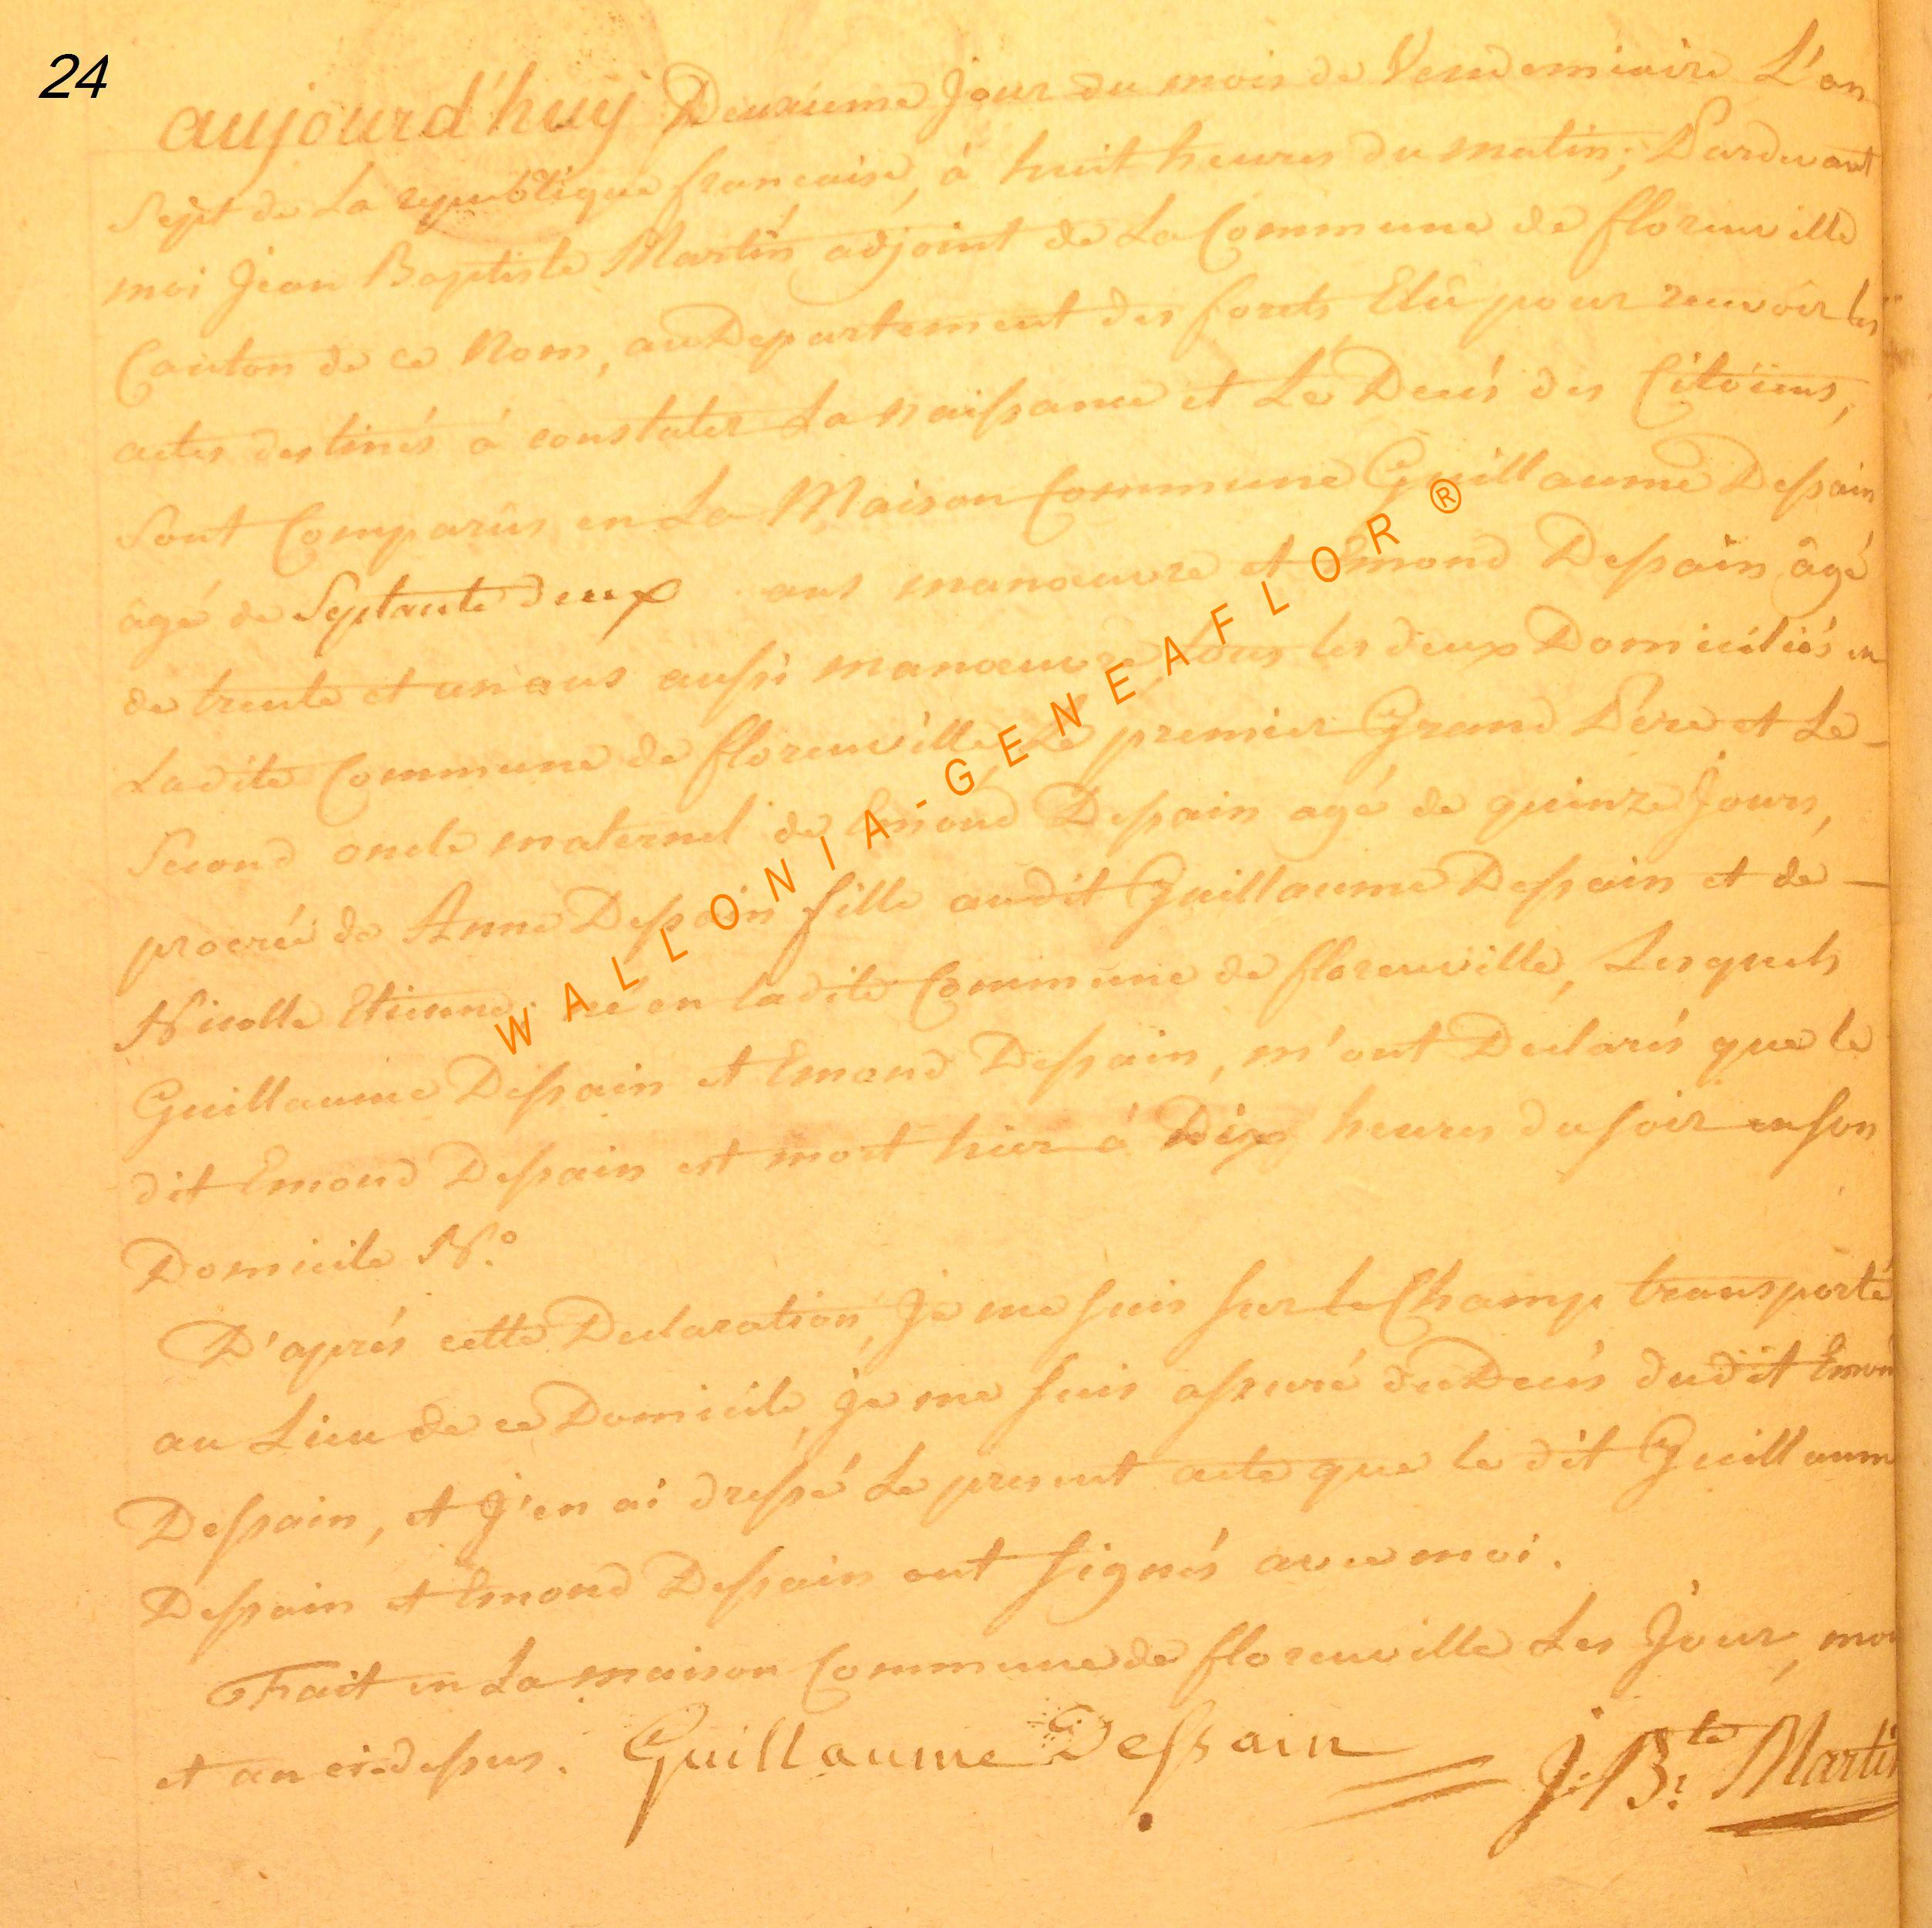 24
aujourd'huy Deuxieme Jour du mois de Vendemiaire L'an
Sept de La republique francaise, à huit heures du matin; Pardevant
moi Jean Baptiste Martin adjoint de La Commune de florenville
Canton de ce Nom, au Departement des forets Elû pour recevoir les
actes destinés à constater La naissance et Le Decés des Citoïens,
Sont Comparûs en La Maison Commune Guillaume Dessain
âgé de Septante deux ans manoeuvre et Emond Dessain âgé
de trente et un ans aussi manoeuvre tous les deux Domiciliés en
Ladite Commune de florenville, Le premier Grand Pere et Le
Second oncle maternel de Emond Dessain agé de quinze Jours,
procréé de Anne Dessain fille audit Guillaume Dessain et de
Nicolle Etienne, né en ladite Commune de florenville, Lesquels
Guillaume Dessain et Emond Dessain, m'ont Declarés que le
dit Emond Dessain est mort hier à Dix heures du soir en son
Domicile N°.
D'aprés cette Declaration, Je me suis sur le Champ transporté
au Lieu de ce Domicile, je me suis assuré du Decés dudit Emond
Dessain, et J'en ai dressé Le present acte que le dit Guillaume
Dessain et Emond Dessain ont signés avec moi.
Fait en La maison Commune de florenville Les Jour, mois
et an ci-dessus. Guillaume Dessain J: B:te Martin
WALLONIA-GENEAFLOR ®